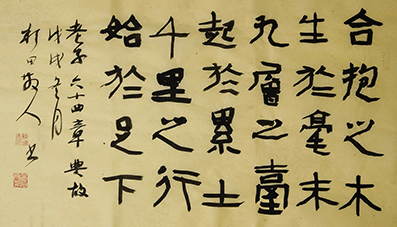 合抱之木
生於毫末
九層之臺
起於累土
千里之行
始於足下
老子六十四章典故
戊戌冬月
散人書